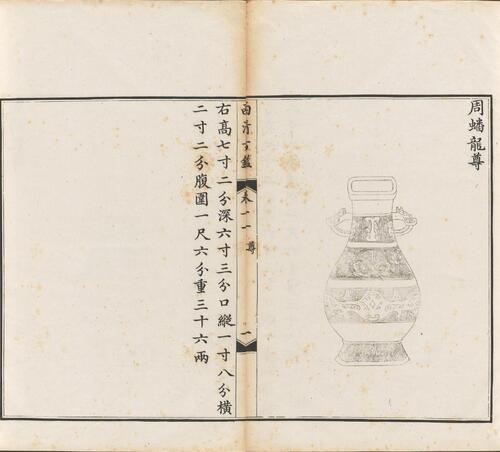 周蟠龍尊
西清古鑑 卷十一 尊 一
右高七寸二分深六寸三分口縱一寸八分橫
二寸二分腹圍一尺六分重三十六兩